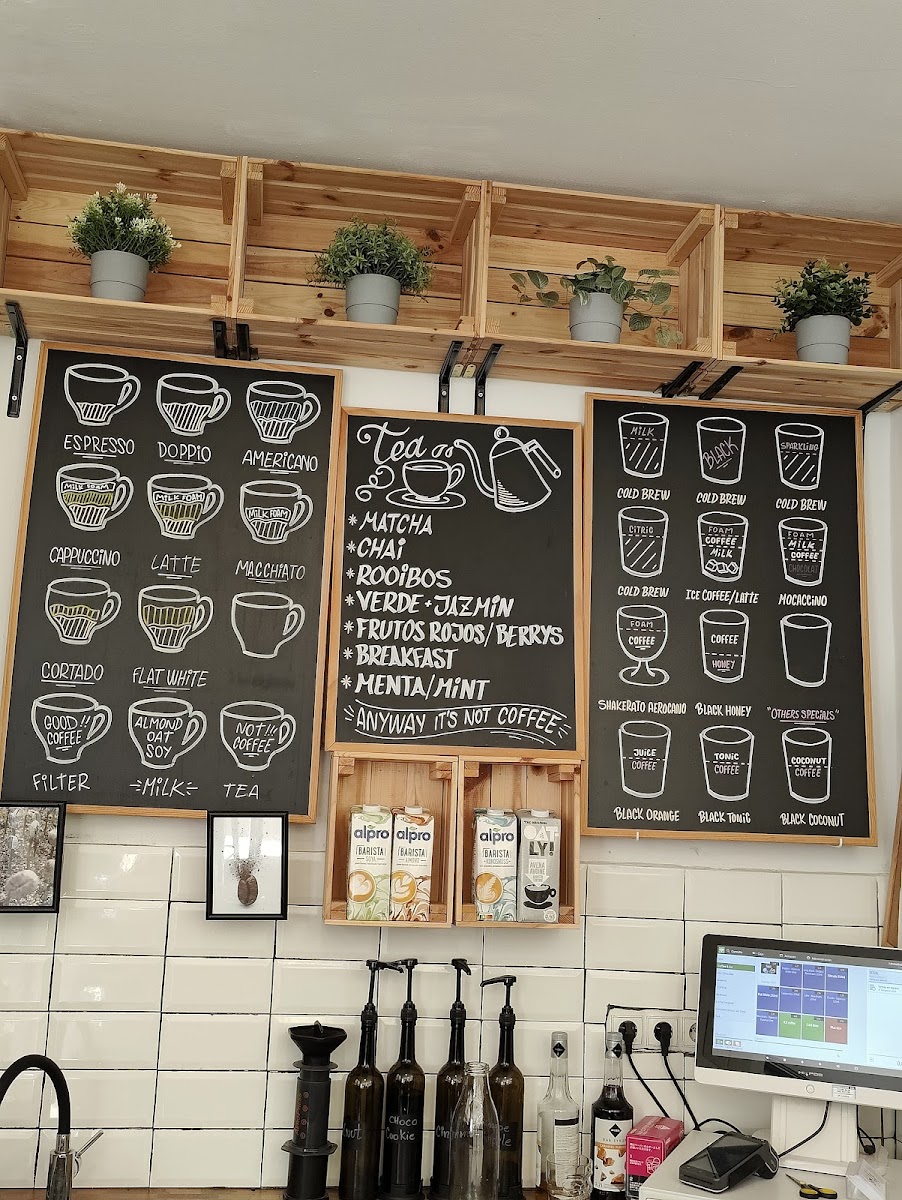 ESPRESSO
DOPPIO
AMERICANO
MILK FOAM
MILK FOAM
MILK FOAM
CAPPUCCINO
LATTE
MACCHIATO
CORTADO
FLAT WHITE
GOOD!!
COFFEE
ALMOND
OAT
SOY
NOT!!!
COFFEE
FILTER
MILK
TEA
Tea
* MATCHA
* CHAI
* ROOIBOS
* VERDE + JAZMIN
* FRUTOS ROJOS/BERRYS
* BREAKFAST
* MENTA/MINT
ANYWAY IT'S NOT COFFEE
MILK
BLACK
SPARKLING
COLD BREW
COLD BREW
COLD BREW
CITRIC
FOAM
COFFEE
MILK
FOAM
MILK
COFFEE
CHOCOLAT
COLD BREW
ICE COFFEE/LATTE
MOCACCINO
FOAM
COFFEE
COFFEE
HONEY
SHAKERATO AEROCANO
BLACK HONEY
"OTHERS SPECIALS"
JUICE
COFFEE
TONIC
COFFEE
COCONUT
COFFEE
BLACK ORANGE
BLACK TONIC
BLACK COCONUT
alpro
BARISTA
alpro
BARISTA
alpro
BARISTA
OAT
LY!
CHOCO
COOKIE